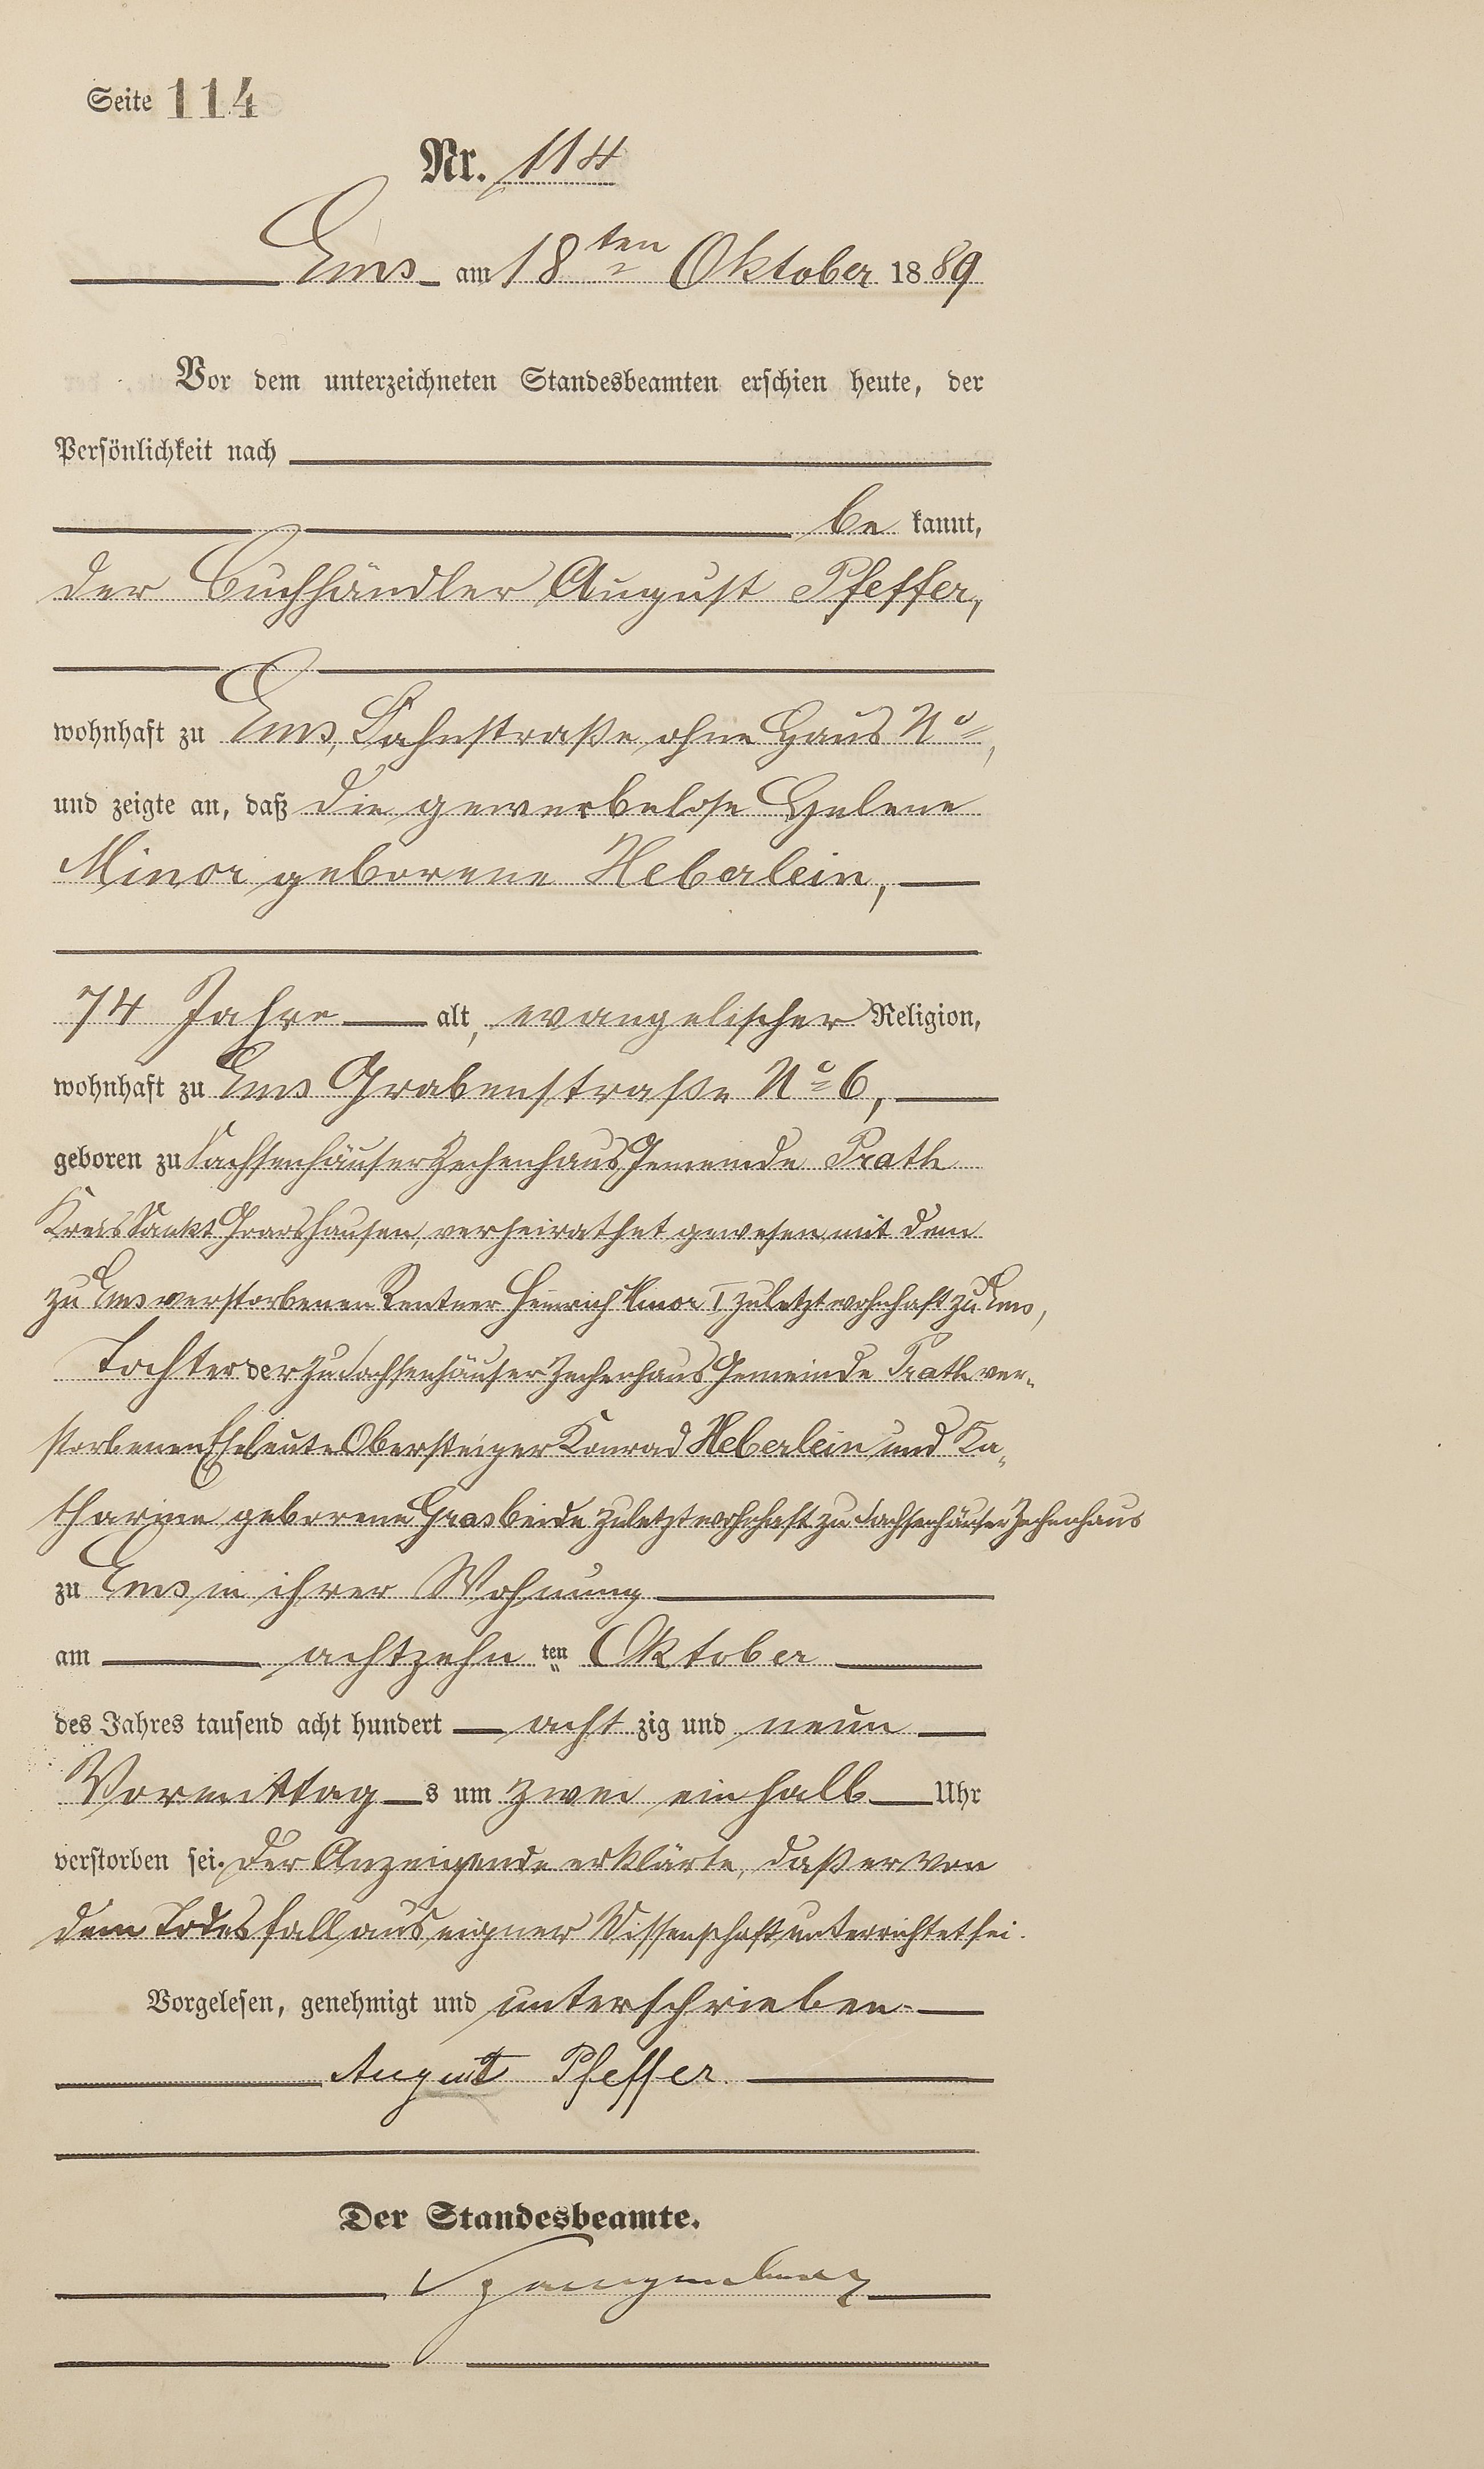 Seite 114
Nr. 114
Ems am 18ten Oktober 1889
Vor dem unterzeichneten Standesbeamten erschien heute, der
Persönlichkeit nach
be kannt,
der Buchhändler August Pfeffer,
wohnhaft zu Ems, Lahnstraße ohne Haus No,
und zeigte an, daß die gewerbelose Helene
Minor geborene Heberlein,
74 Jahre alt, evangelischer Religion,
wohnhaft zu Ems Grabenstraße No 6,
geboren zu Sachsenhäuser Zechenhaus Gemeinde Prath
Kreis Sankt Goarshausen, verheirathet gewesen mit dem
zu Ems verstorbenen Rentner Heinrich Minor I zuletzt wohnhaft zu Ems,
Tochter der zu Sachsenhäuser Zechenhaus Gemeinde Prath ver-
storbenen Eheleute Obersteiger Konrad Heberlein und Ka-
tharine geborene Gras beide zuletzt wohnhaft zu Sachsenhäuser Zechenhaus
zu Ems in ihrer Wohnung
am achtzehn ten Oktober
des Jahres tausend acht hundert acht zig und neun
Vormittag s um zwei einhalb Uhr
verstorben sei. Der Anzeigende erklärte, daß er von
dem Todesfall aus eigner Wissenschaft unterrichtet sei.
Vorgelesen, genehmigt und unterschrieben
August Pfeffer
Der Standesbeamte.